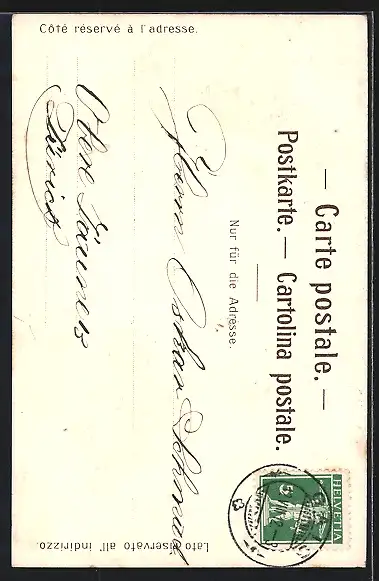 — Carte postale. —
Postkarte. — Cartolina postale.
Nur für die Adresse.
Côté réservé à l'adresse.
Lato riservato all' indirizzo.
HELVETIA
Herrn Oskar
Obere Zäune
Zürich